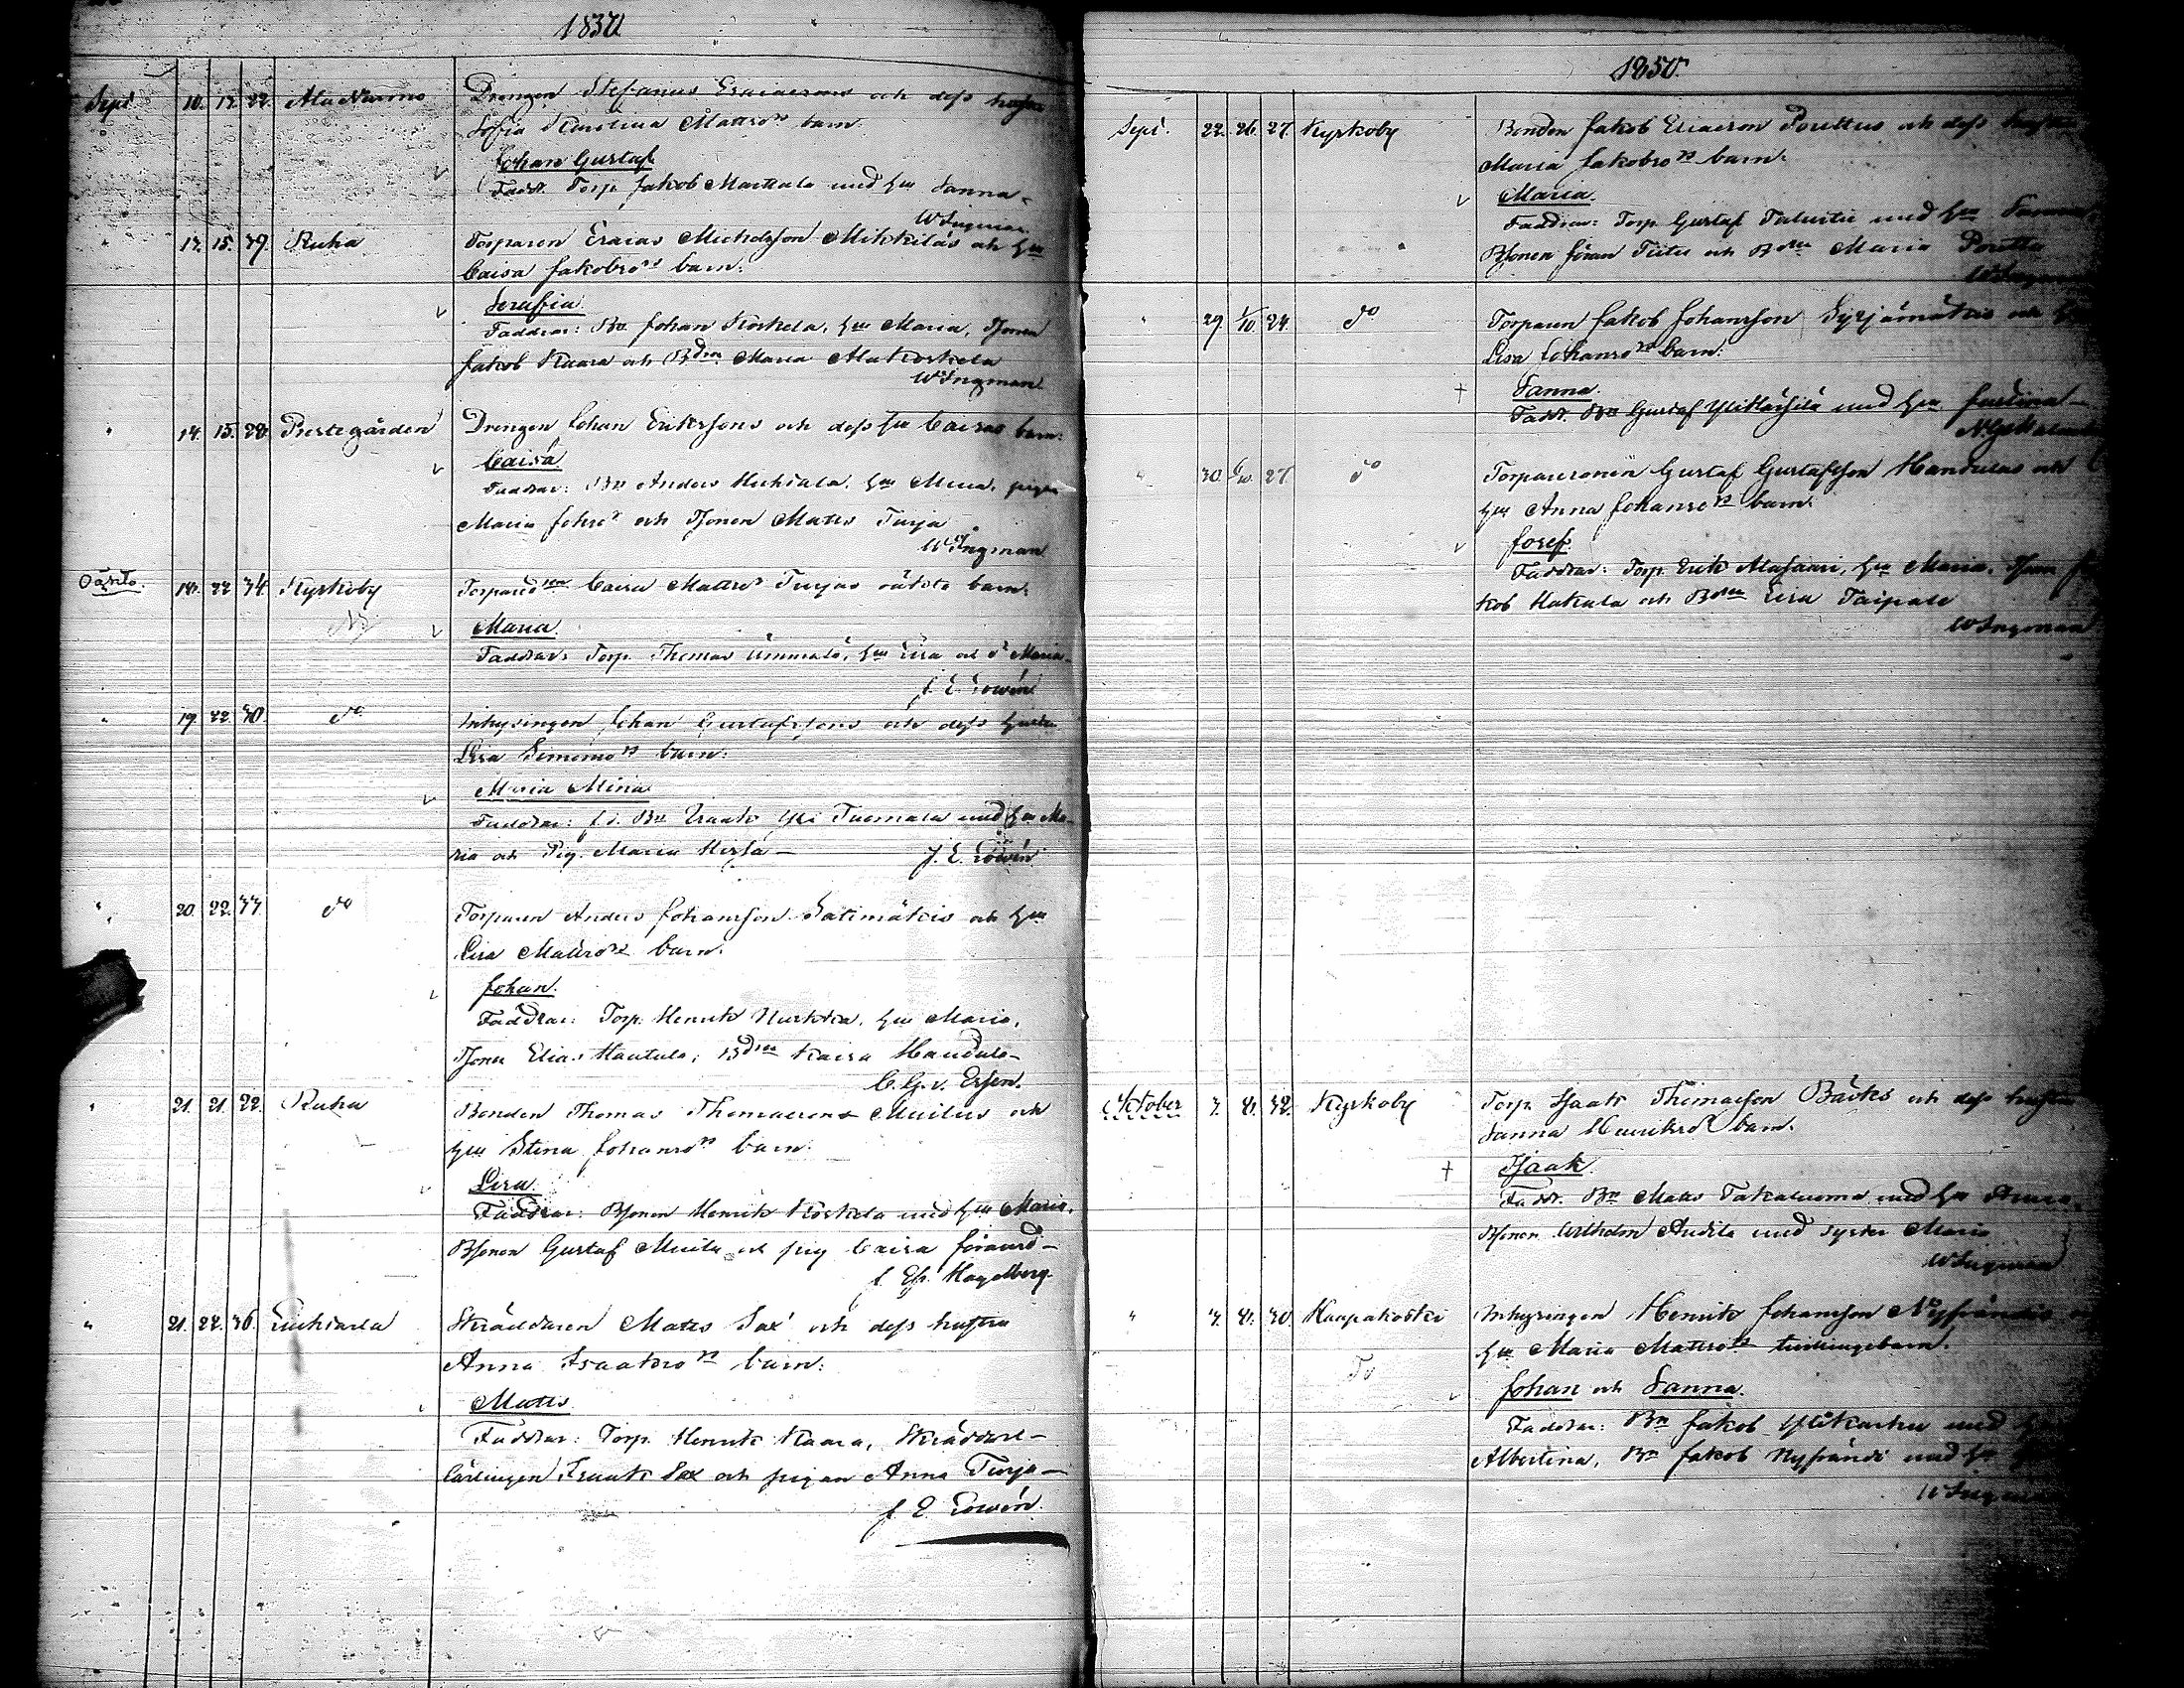 1850
Sept 10. 12. 22. Ala Nurmo Drengen Stefanus Esaiaesons och dess hustru
Sofia Karolina Mattsdr barn
Johan Gustaf
Faddr. Torp. Jakob Marttala med hu Sanna
W Ingman
" 12. 15. 39. Ruha Torparen Esaias Michelsson Mikkilas och hu
Caisa Jakobsdr barn:
Serafia
Faddrar: Bn Johan Koskela, hu Maria,
Jakob Kaara och Bdrn Maria Alakoskela
W Ingman
" 14. 15. 28. Prestegården Drengen Johan Erikssons och dess hu Caisas barn:
Caisa
Faddrar: Bn Anders Huhtala, hu Mina, pigan
Maria Johsdr och Tsonen Matts Turja
W Ingman
Oäkta. 18. 22. 34. Kyrkoby Torparedrn Caisa Mattsdr Turjas oäkta barn:
Maria
Faddrar: Torp. Thomas Ämmälä, hu Lisa och d: Maria
J. E. Lowén
" 19. 22. 30. do Inhysingen Johan Gustafssons och dess hustru
Lisa Simonsdr barn:
Maria Mina
Faddrar: f.d. Bn Isaak Yli Tuomala med hu Ma-
ria och Pig. Maria Hirsa
J. E. Lowén
" 20. 22. 37. do Torparen Anders Johansson Salimäkis och hu
Lisa Mattsdr barn.
Johan.
Faddrar: Torp. Henrik Hurkka, hu Maria,
Tsonen Elias Hautala, Bdrn Kaisa Handula
C. G. v. Essen.
" 21. 21. 22. Ruha Bonden Thomas Thomaesons Muilus och
hu Stina Johansdr barn:
Lisa.
Faddrar: Bsonen Henrik Koskela med hu Maria,
Bsonen Gustaf Muila och pig Caisa
J. Ef. Hagelberg
" 21. 22. 36. Luchtarla Skräddaren Matts Sax och dess hustru
Anna Isaaksdr barn:
Matts
Faddrar: Torp. Henrik Kaara, Skräddare-
lärlingen Isaak Sax och pigan Anna Turja
J. E. Lowén.
1850.
Sept. 22. 26. 27. Kyrkoby Bonden Jakob Eliaeson Porettus och dess hustru
Maria Jakobsdr barn:
Maria.
Faddrar: Torp. Gustaf Taluitie med hu
Bsonen Jöran Tiitu och Bdrn Maria Poretta
W Ingman
" 29. 1/10. 24. do Torparen Jakob Johansson Syrjämäkis och
Lisa Johansdr barn:
Sanna.
Faddr. Bn Gustaf Ylikäyhkä med hu Justina
" 30. 6/10. 27. do Torparesonen Gustaf Gustafsson Handulas och
hu Anna Johansdr barn:
Josef.
Faddrar: Torp. Erik Alasaari, hu Maria, Tsonen Ja-
kob Hakala och Bdrn Lisa Taipale
W Ingman
October 3. 6. 32. Kyrkoby Torp. Isaak Thomaeson Bäcks och dess hustru
Sanna Henriksdr barn.
Isaak.
Faddr. Bn Matts Takaluoma med hu Anna,
Bsonen Wilhelm Antila med syster Maria
W Ingman
" 3. 6. 30. Haapakoski Inhysingen Henrik Johansson Nysrändis
hu Maria Mattsdr tvillingebarn.
Johan och Sanna.
Faddrar: Bn Jakob Ylikarhu med
Albertina, Bn Jakob Nysrändi med hu
W Ingman